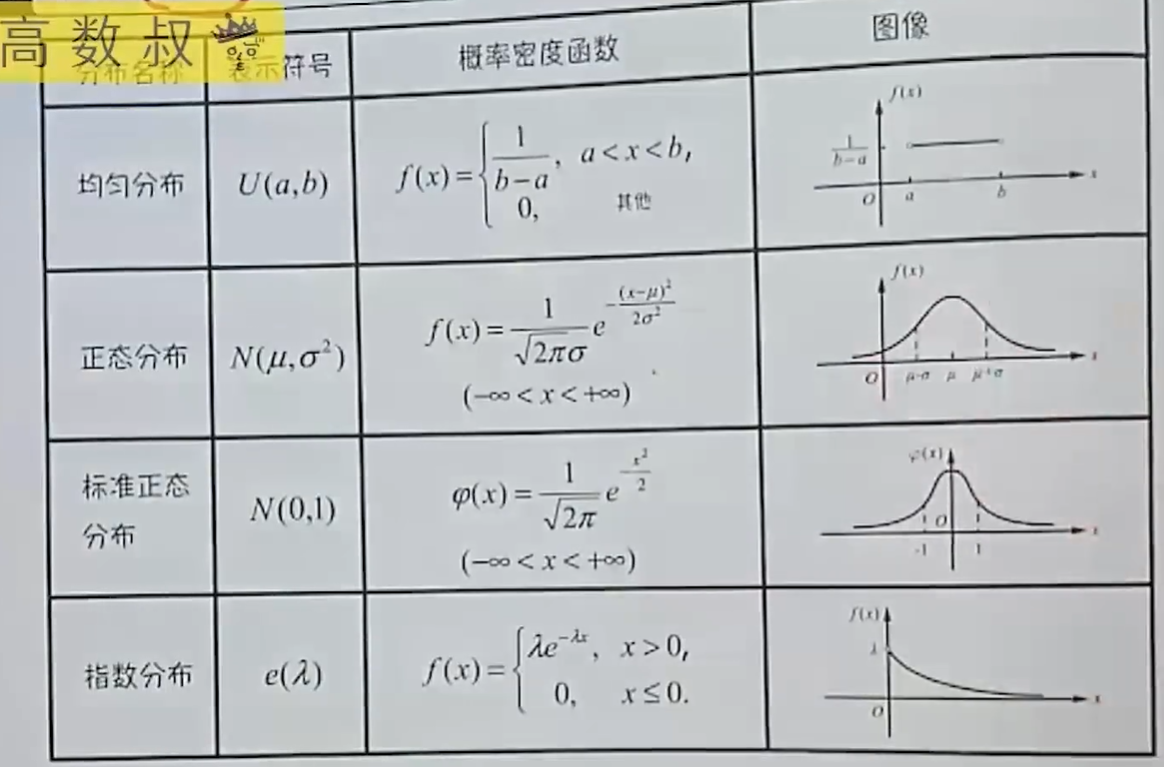 高数叔
分布名称 表示符号 概率密度函数 图像
均匀分布 U(a,b) f(x)={1/(b-a), a<x<b, 0, 其他 f(x) 1/(b-a) O a b x
正态分布 N(μ,σ²) f(x)=1/(√2π σ) e^(-(x-μ)²/2σ²) (-∞<x<+∞) f(x) O μ-σ μ μ+σ x
标准正态分布 N(0,1) φ(x)=1/√2π e^(-x²/2) (-∞<x<+∞) φ(x) O -1 1 x
指数分布 e(λ) f(x)={λe^(-λx), x>0, 0, x≤0. f(x) λ O x